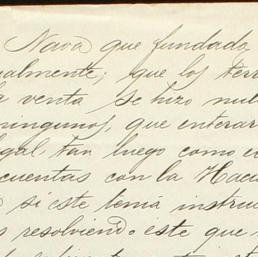 Nava que fundado
ualmente; que los terr
a venta se hizo nul
ningunos, que enterar
gal tan luego como e
cuentas con la Hacie
si este tenia instruc
s resolviendo este que